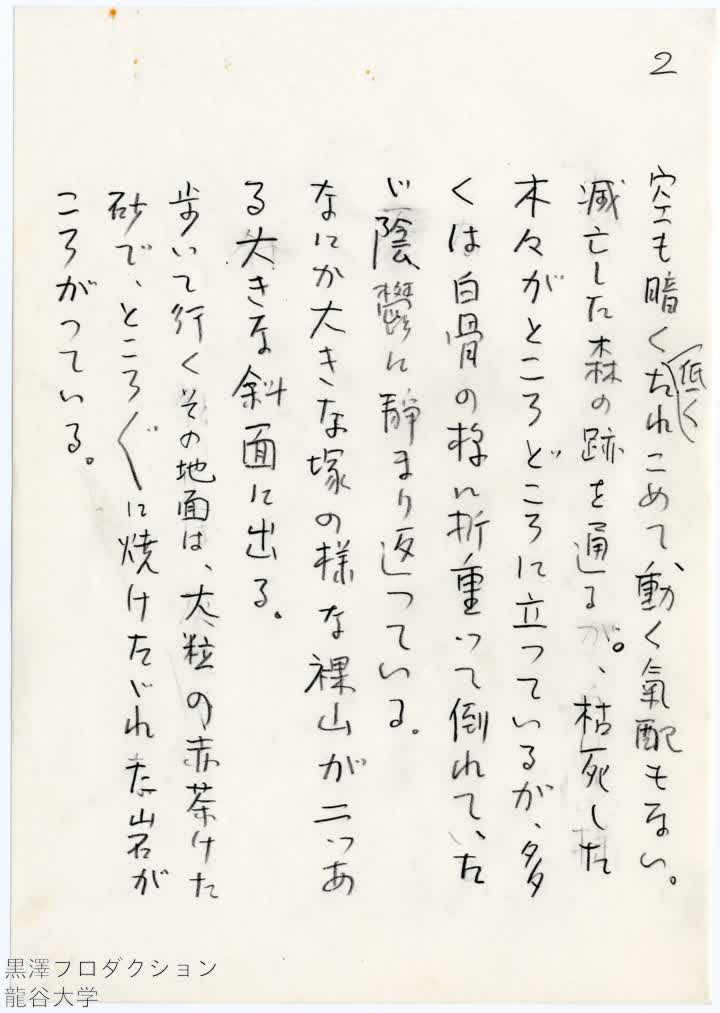 2
空も暗く低くたれこめて、動く氣配もない。
滅亡した森の跡を通る。枯死した
木々がところどころに立っているが、多
くは白骨の様に折重って倒れていた
じ陰鬱に静まり返っている。
なにか大きな塚の様な裸山が二つあ
る大きな斜面に出る。
歩いて行くその地面は、大粒の赤茶けた
砂で、ところ〲に焼けたゞれた岩が
ころがっている。
黒澤プロダクション
龍谷大学